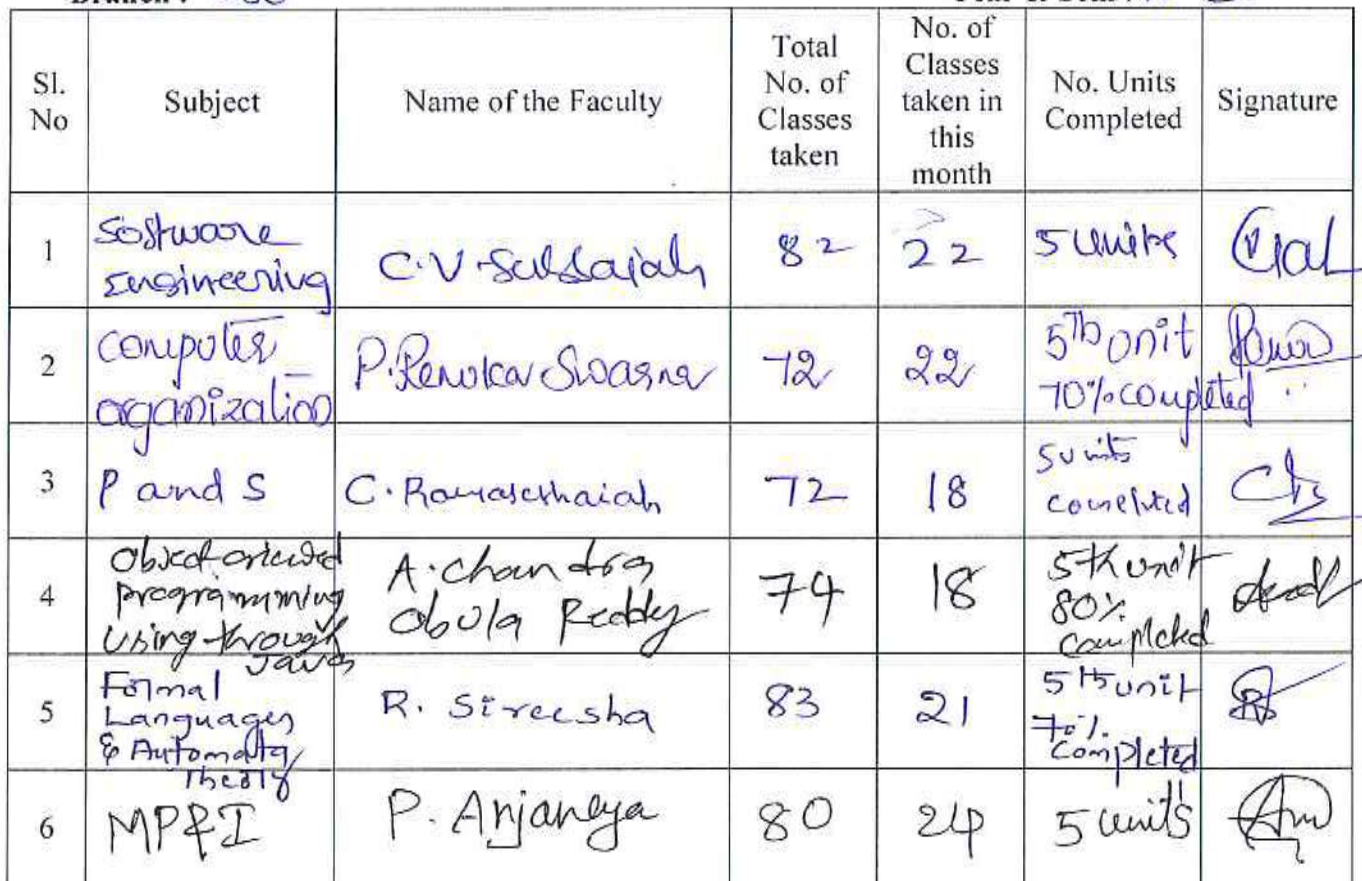 Branch :
Sl. No
Subject
Name of the Faculty
Total No. of Classes taken
No. of Classes taken in this month
No. Units Completed
Signature
1
Software
Engineering
C.V. Subbaiah
82
22
5 units
2
Computer
organization
P. Renuka Swarna
72
22
5Th unit
70% completed
3
P and S
C. Ramaseshaiah
72
18
5 units
completed
4
Object oriented
programming
using through
Java
A. Chandra
Obula Reddy
74
18
5th unit
80%
completed
5
Formal
Languages
& Automata
Theory
R. Sireesha
83
21
5th unit
70%
completed
6
MP&I
P. Anjaneya
80
24
5 units